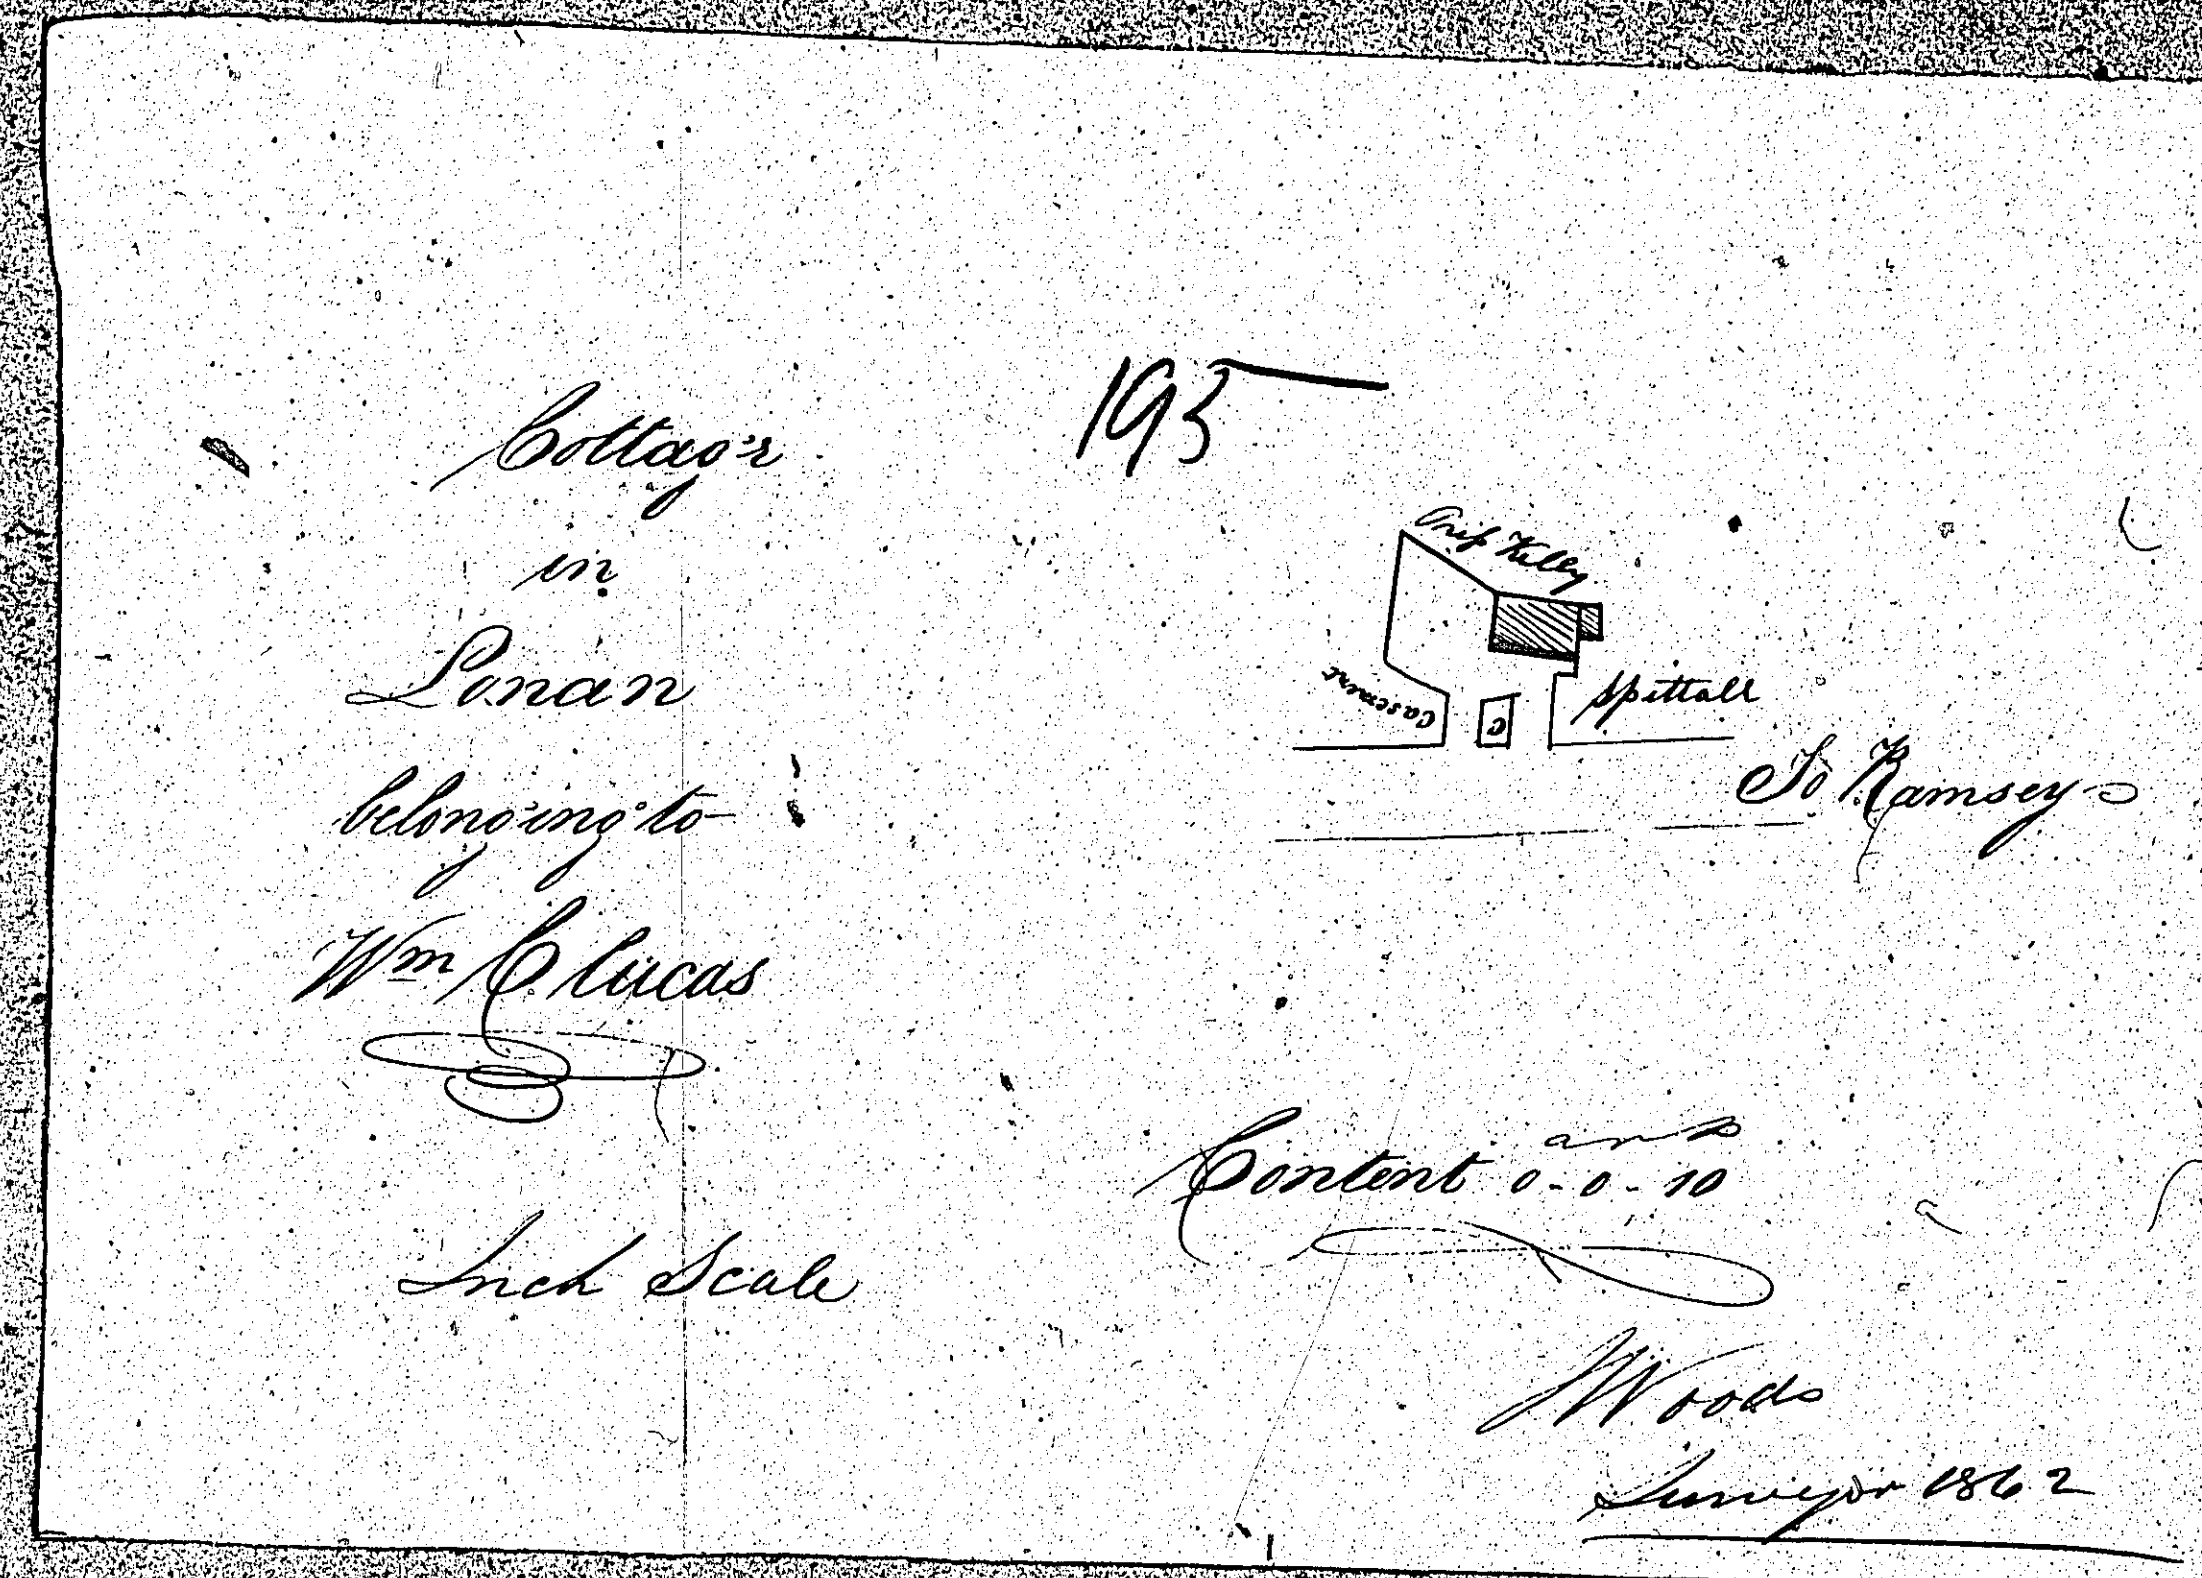 Cottage
in
Lonan
belonging to
Wm C. lucas
Inch Scale
195
Kelly
Casement
C
Spittall
To Ramsey
a r p
Content 0-0-10
J Woods
Surveyor 1862